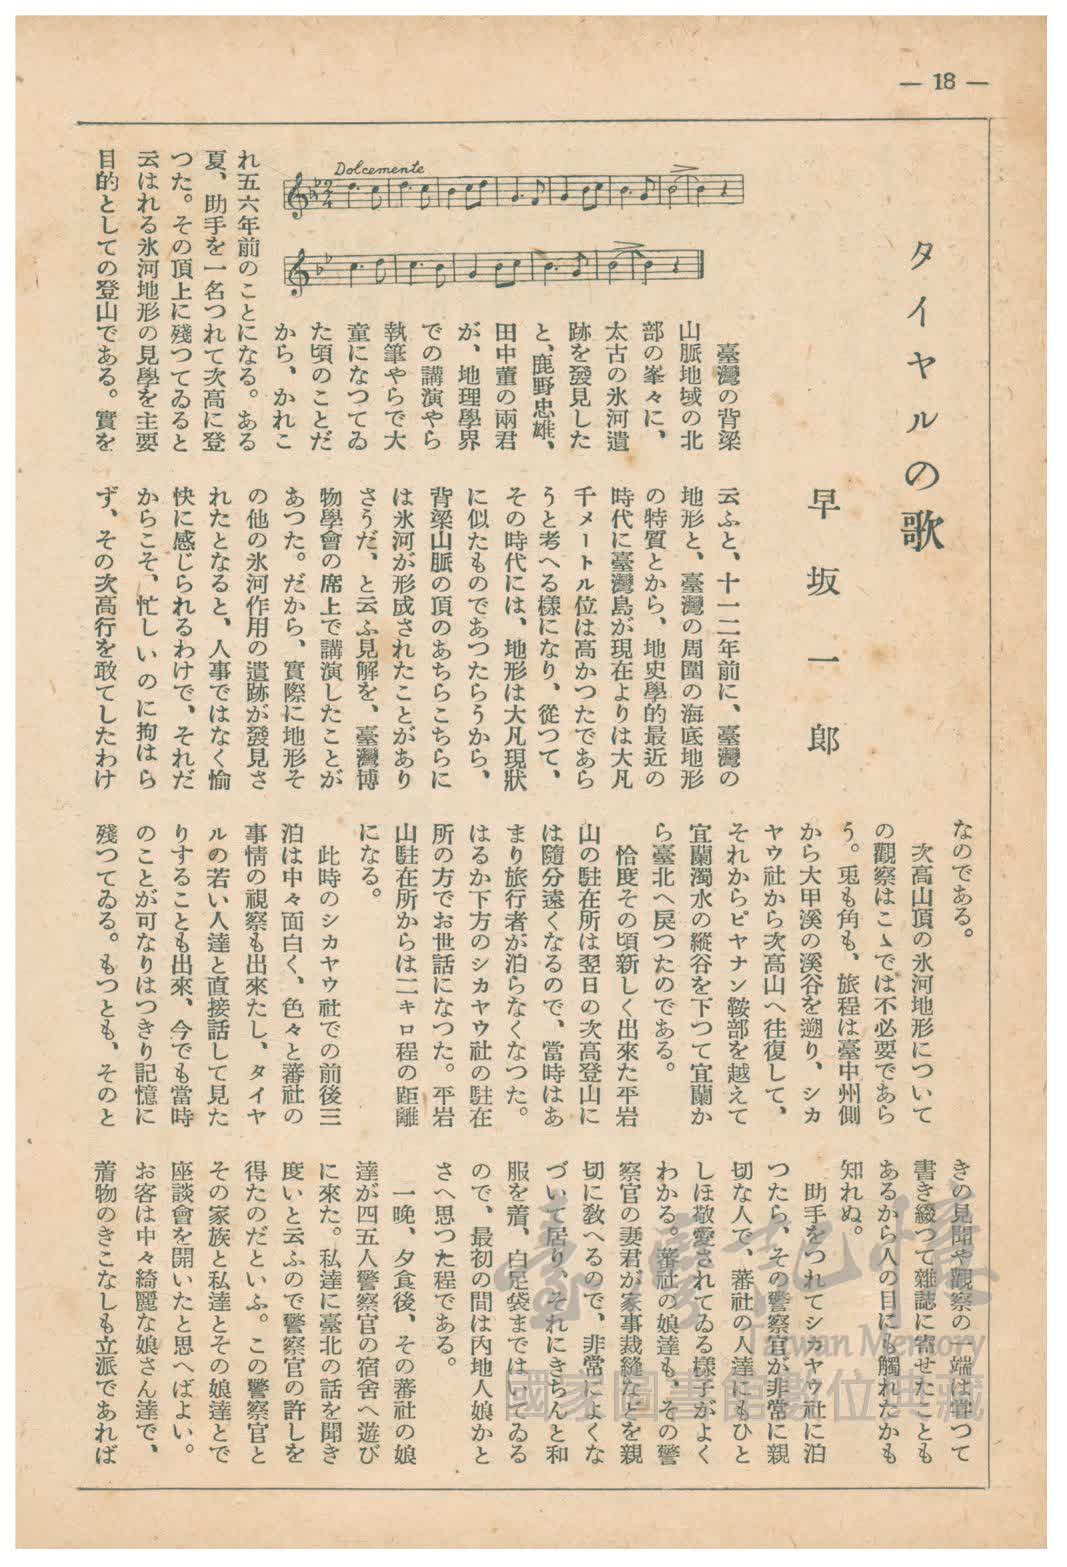 — 18 —
タイヤルの歌
早坂一郎
Dolcemente
臺灣の背梁
山脈地域の北
部の峯々に、
太古の氷河遺
跡を發見した
と、鹿野忠雄、
田中薫の兩君
が、地理學界
での講演やら
執筆やらで大
童になつてゐ
た頃のことだ
から、かれこ
れ五六年前のことになる。ある
夏、助手を一名つれて次高に登
つた。その頂上に殘つてゐると
云はれる氷河地形の見學を主要
目的としての登山である。實を
云ふと、十一二年前に、臺灣の
地形と、臺灣の周圍の海底地形
の特質とから、地史學的最近の
時代に臺灣島が現在よりは大凡
千メートル位は高かつたであら
うと考へる樣になり、從つて、
その時代には、地形は大凡現狀
に似たものであつたらうから、
背梁山脈の頂のあちらこちらに
は氷河が形成されたことがあり
さうだ、と云ふ見解を、臺灣博
物學會の席上で講演したことが
あつた。だから、實際に地形そ
の他の氷河作用の遺跡が發見さ
れたとなると、人事ではなく愉
快に感じられるわけで、それだ
からこそ、忙しいのに拘はら
ず、その次高行を敢てしたわけ
なのである。
次高山頂の氷河地形について
の觀察はこゝでは不必要であら
う。兎も角も、旅程は臺中州側
から大甲溪の溪谷を遡り、シカ
ヤウ社から次高山へ往復して、
それからピヤナン鞍部を越えて
宜蘭濁水の縱谷を下つて宜蘭か
ら臺北へ戻つたのである。
恰度その頃新しく出來た平岩
山の駐在所は翌日の次高登山に
は隨分遠くなるので、當時はあ
まり旅行者が泊らなくなつた。
はるか下方のシカヤウ社の駐在
所の方でお世話になつた。平岩
山駐在所からは二キロ程の距離
になる。
此時のシカヤウ社での前後三
泊は中々面白く、色々と蕃社の
事情の視察も出來たし、タイヤ
ルの若い人達と直接話して見た
りすることも出來、今でも當時
のことが可なりはつきり記憶に
殘つてゐる。もつとも、そのと
きの見聞や觀察の一端は甞つて
書き綴つて雜誌に寄せたことも
あるから人の目にも觸れたかも
知れぬ。
助手をつれてシカヤウ社に泊
つたら、その警察官が非常に親
切な人で、蕃社の人達にもひと
しほ敬愛されてゐる樣子がよく
わかる。蕃社の娘達も、その警
察官の妻君が家事裁縫などを親
切に敎へるので、非常によくな
づいて居り、それにきちんと和
服を着、白足袋まではいてゐる
ので、最初の間は內地人娘かと
さへ思つた程である。
一晩、夕食後、その蕃社の娘
達が四五人警察官の宿舍へ遊び
に來た。私達に臺北の話を聞き
度いと云ふので警察官の許しを
得たのだといふ。この警察官と
その家族と私達とその娘達とで
座談會を開いたと思へばよい。
お客は中々綺麗な娘さん達で、
着物のきこなしも立派であれば
臺灣記憶
Taiwan Memory
國家圖書館數位典藏